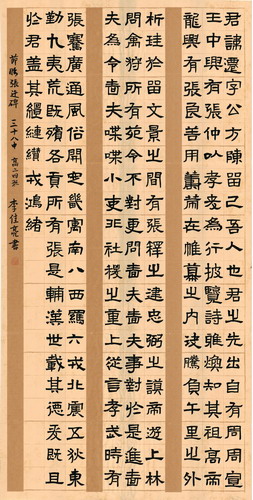 君諱遷字公方陳留己吾人也君之先出自有周周宣
王中興有張仲以孝友為行披覽詩雅煥知其祖高帝
龍興有張良善用籌策在帷幕之內決勝負千里之外
析珪於留文景之間有張釋之建忠弼之謨帝遊上林
問禽狩所有苑令不對更問嗇夫嗇夫事對於是進嗇
夫為令嗇夫喋喋小吏非社稷之重上從言孝武時有
張騫廣通風俗開定畿寓南八西羈六戎北震五狄東
勤九夷荒既殯各貢所有張是輔漢世載其德爰既且
於君蓋其繵縺纘戎鴻緒
節臨張遷碑 三十八中 高二四班 李佳亮書